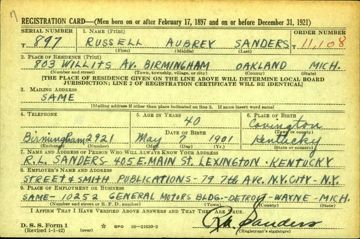 REGISTRATION CARD—(Men born on or after February 17, 1897 and on or before December 31, 1921)
SERIAL NUMBER 1. NAME (Print) ORDER NUMBER
T 897 RUSSELL AUBREY SANDERS 11,108
(First) (Middle) (Last)
2. PLACE OF RESIDENCE (Print)
803 WILLITS AV. BIRMINGHAM OAKLAND MICH.
(Number and street) (Town, township, village, or city) (County) (State)
[THE PLACE OF RESIDENCE GIVEN ON THE LINE ABOVE WILL DETERMINE LOCAL BOARD
JURISDICTION; LINE 2 OF REGISTRATION CERTIFICATE WILL BE IDENTICAL]
3. MAILING ADDRESS
SAME
(Mailing address if other than place indicated on line 2. If same insert word same)
4. TELEPHONE 5. AGE IN YEARS 6. PLACE OF BIRTH
40 Covington
DATE OF BIRTH (Town or county)
Birmingham 2921 May 7 1901 Kentucky
(Exchange) (Number) (Mo.) (Day) (Yr.) (State or country)
7. NAME AND ADDRESS OF PERSON WHO WILL ALWAYS KNOW YOUR ADDRESS
R.L. SANDERS 405 E. MAIN ST. LEXINGTON - KENTUCKY
8. EMPLOYER'S NAME AND ADDRESS
STREET & SMITH PUBLICATIONS - 79 7TH AVE. N.Y. CITY - N.Y.
9. PLACE OF EMPLOYMENT OR BUSINESS
SAME - 10252 GENERAL MOTORS BLDG - DETROIT - WAYNE - MICH.
(Number and street or R. F. D. number) (Town) (County) (State)
I AFFIRM THAT I HAVE VERIFIED ABOVE ANSWERS AND THAT THEY ARE TRUE.
D. S. S. Form 1
(Revised 1-1-42) (over) GPO Sanders
(Registrant's signature)